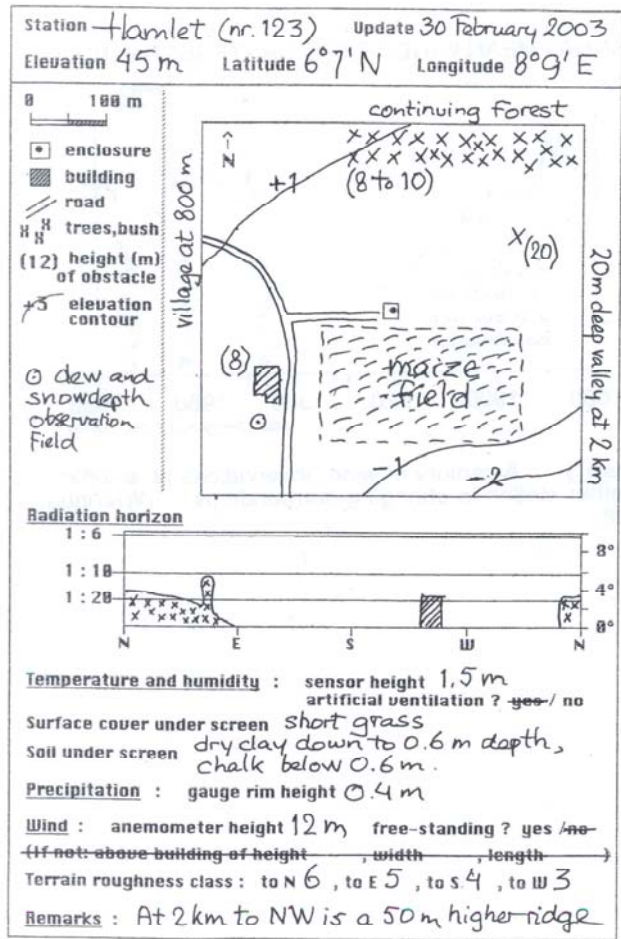 Station Hamlet (nr. 123) Update 30 February 2003
Elevation 45 m Latitude 6°7' N Longitude 8°9' E
0 100 m
enclosure
building
road
trees, bush
(12) height (m)
of obstacle
+3 elevation
contour
dew and
snowdepth
observation
Field
continuing Forest
N
village at 800 m
+1
(8 to 10)
X (20)
20 m deep valley at 2 km
(8)
maize
field
-1
-2
Radiation horizon
1 : 6
1 : 10
1 : 20
8°
4°
0°
N E S W N
Temperature and humidity : sensor height 1.5 m
artificial ventilation ? yes / no
Surface cover under screen short grass
Soil under screen dry clay down to 0.6 m depth,
chalk below 0.6 m.
Precipitation : gauge rim height 0.4 m
Wind : anemometer height 12 m free-standing ? yes / no
(If not: above building of height , width , length )
Terrain roughness class : to N 6 , to E 5 , to S 4 , to W 3
Remarks : At 2 km to NW is a 50 m higher ridge